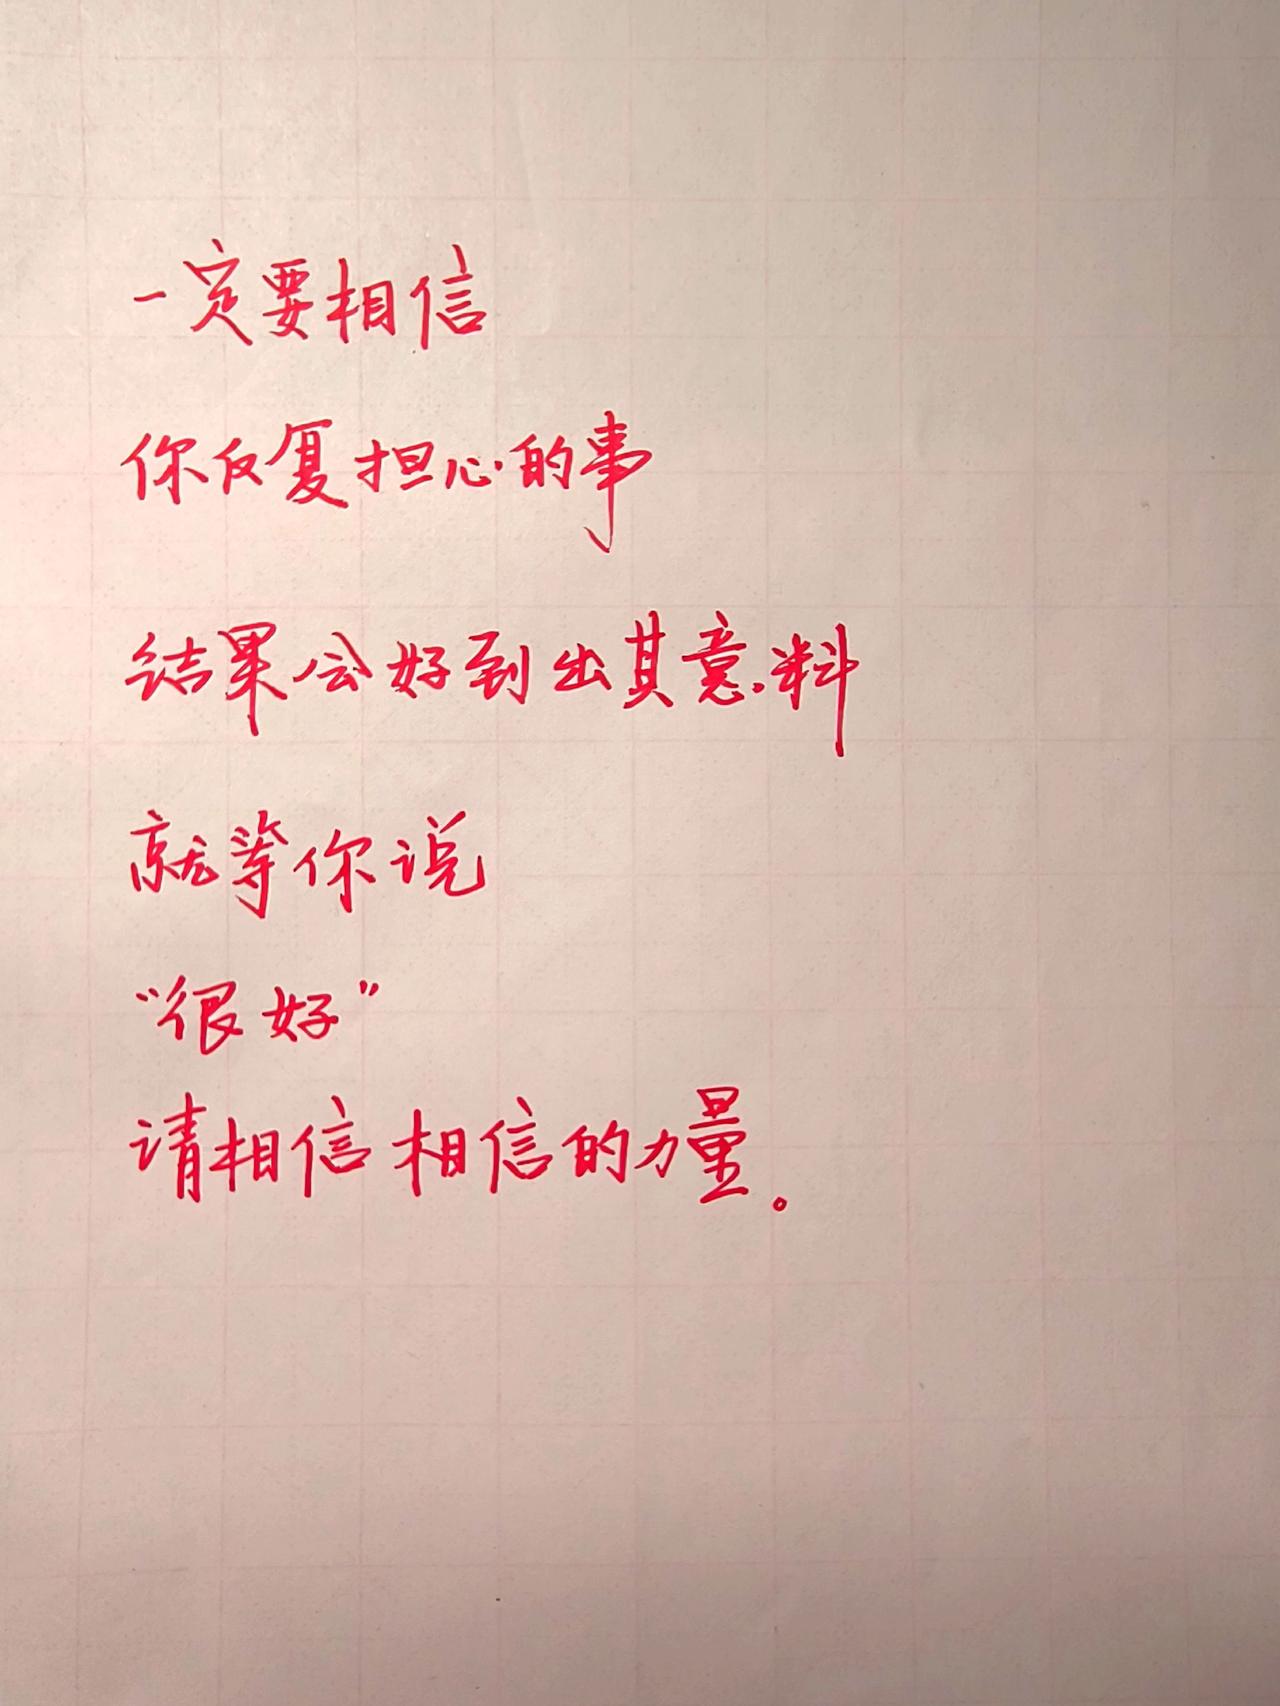 一定要相信
你反复担心的事
结果会好到出其意料
就等你说
“很好”
请相信相信的力量。